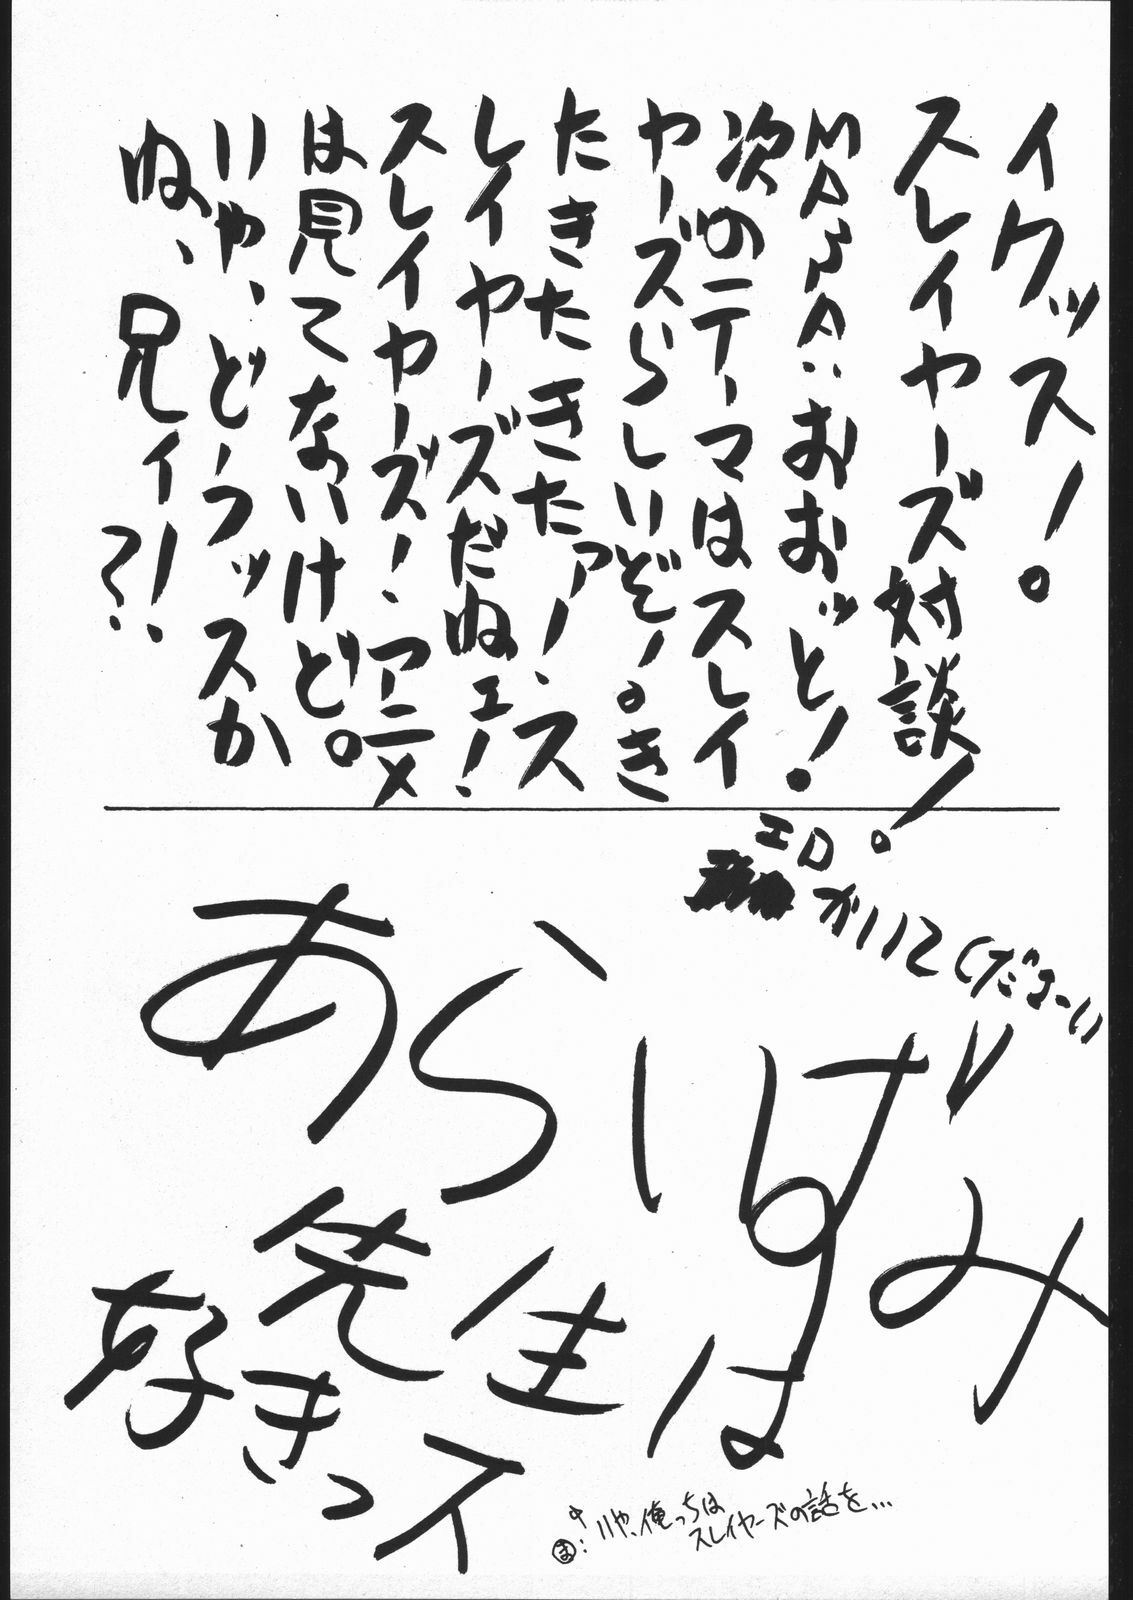 イクッス！。
スレイヤーズ対談！。
MASA：おおッと！。
次のテーマはスレイ
ヤーズらしいぞ！。き
たきたきたァー！、ス
レイヤーズだぬェ！
スレイヤーズ！、アニメ
は見てないけど。
いや、どーッスか
ね、兄ィ？！
エロ
かいてくださーい
あらいずみ
先生は
好きっス
いや、俺っちは
スレイヤーズの話を…